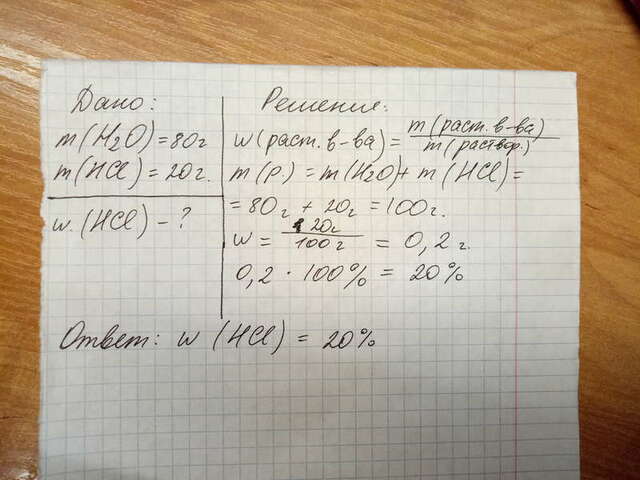 Дано:
m(H₂O)=80г
m(HCl)=20г.
w.(HCl)-?
Решение:
w(раст. в-ва)=m(раст. в-ва)/m(раствор.)
m(р)=m(H₂O)+m(HCl)=
=80г+20г=100г.
w=20г/100г=0,2г.
0,2·100%=20%
Ответ: w(HCl)=20%